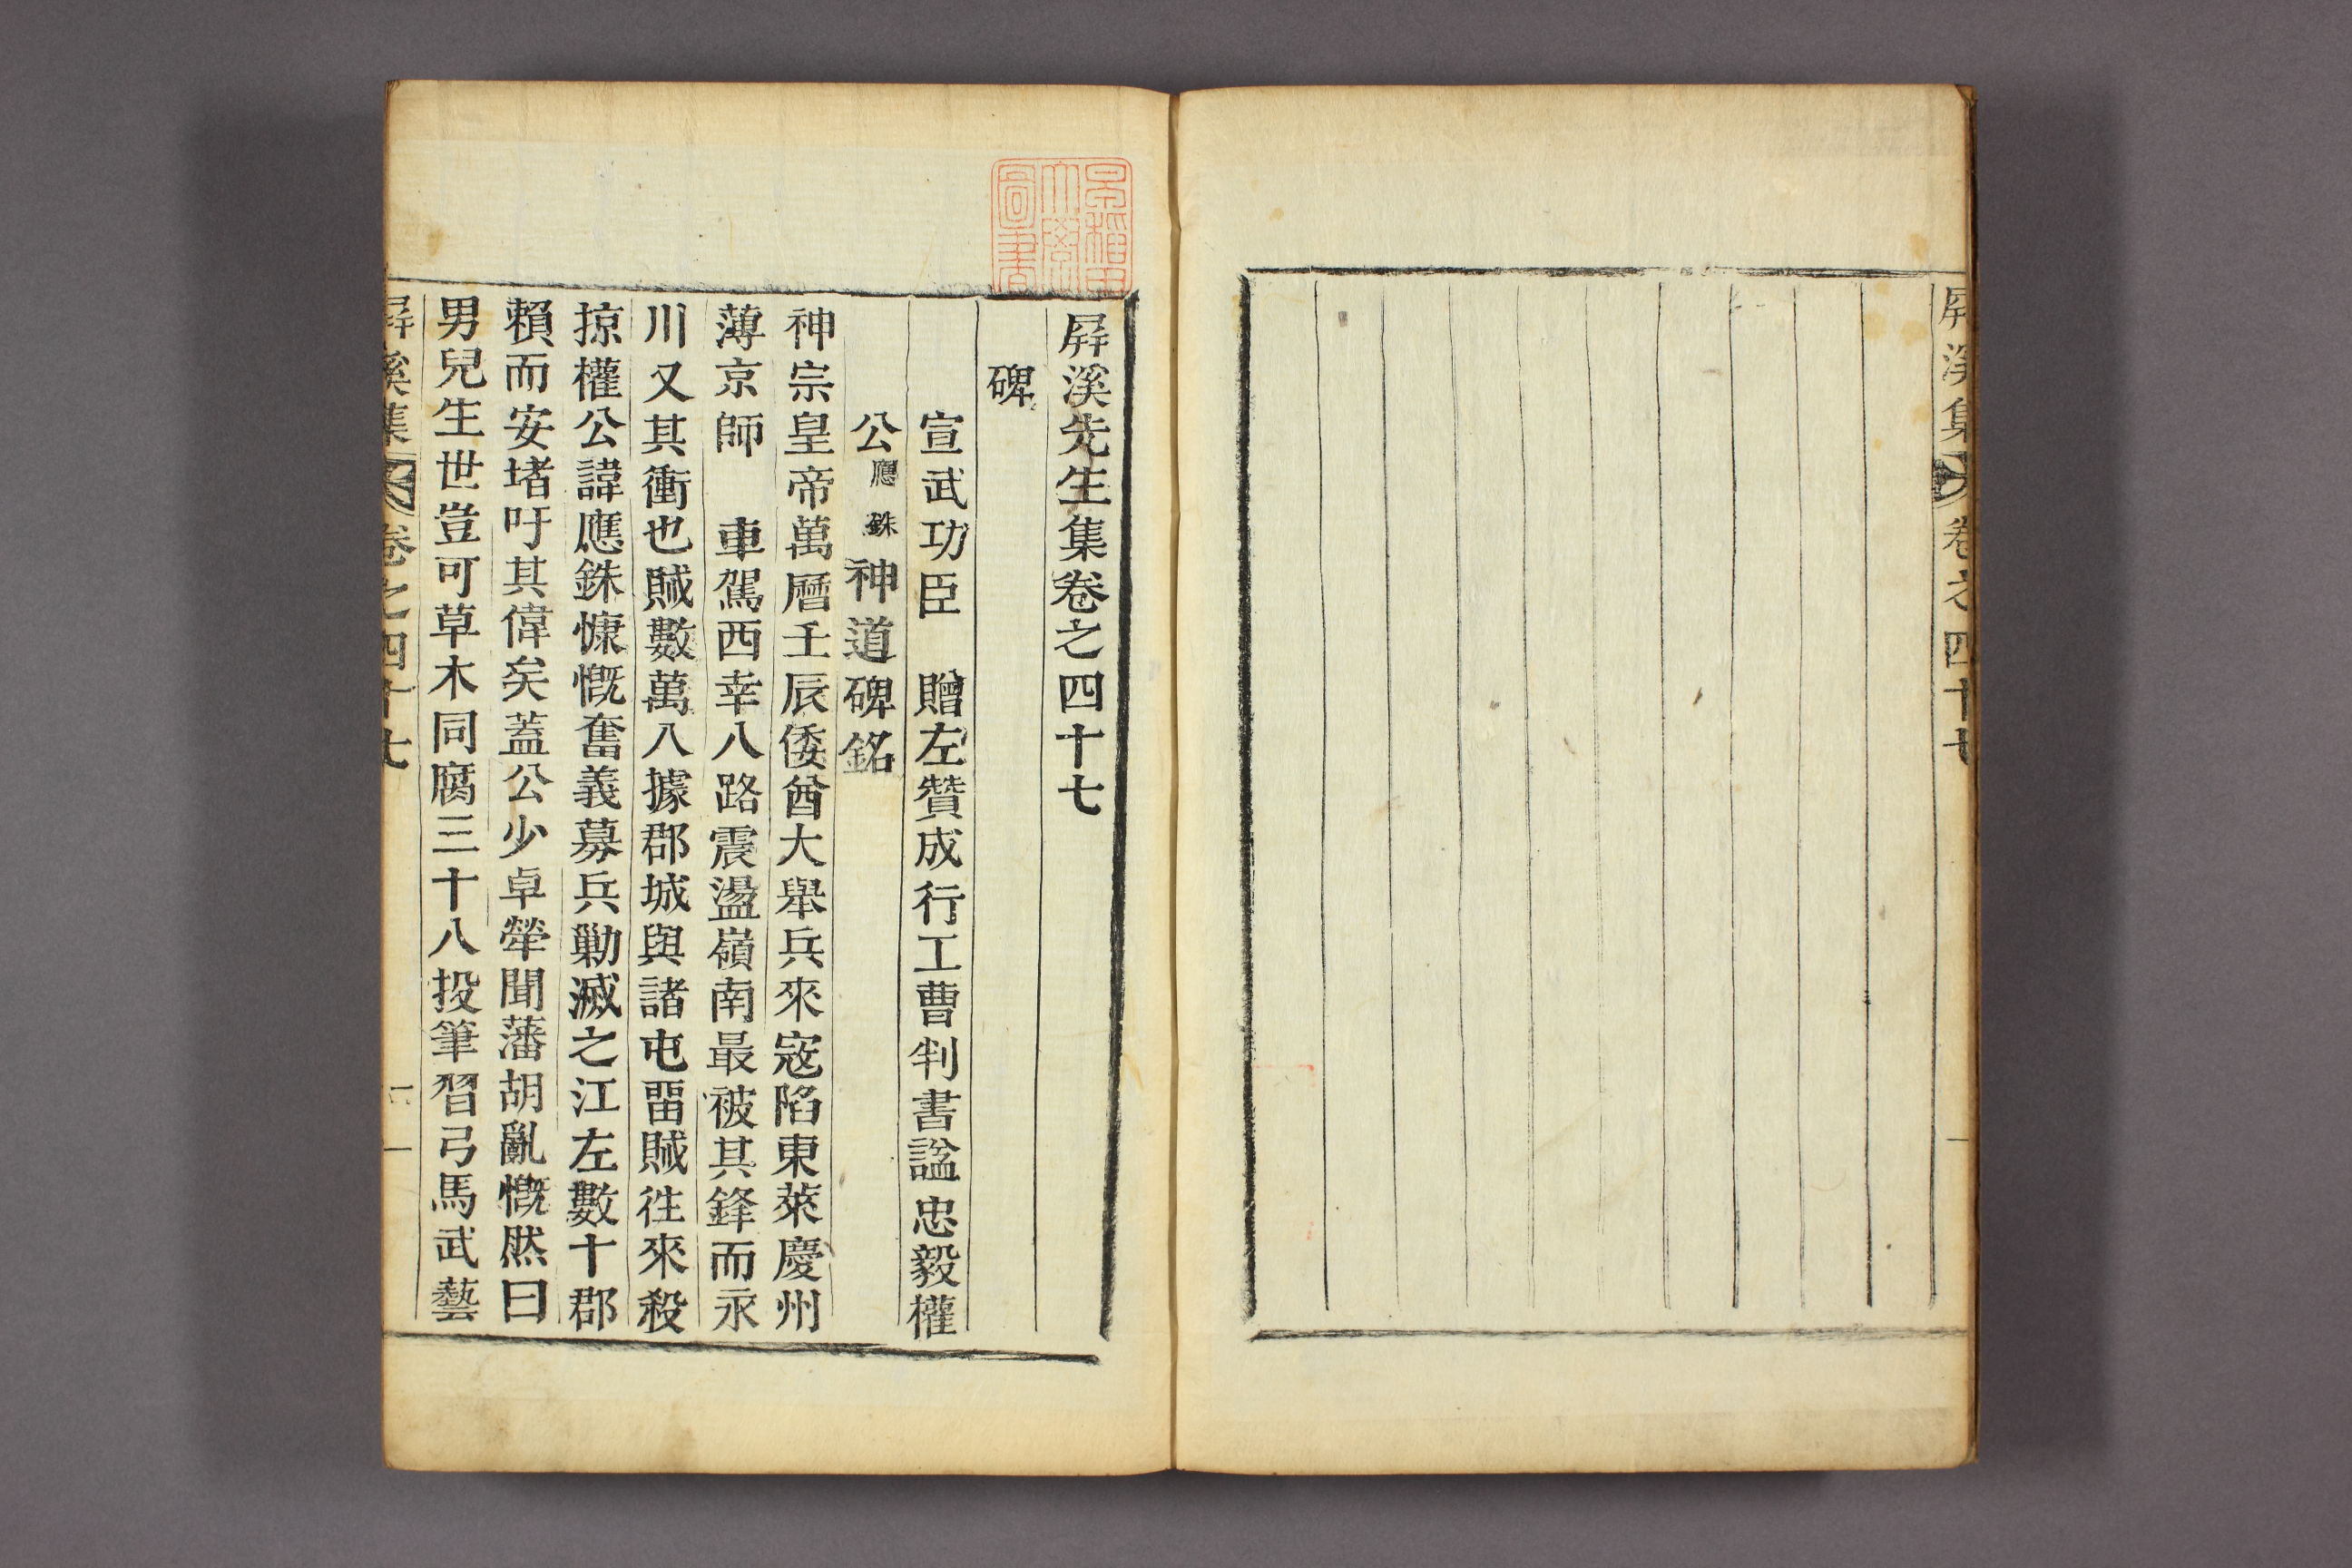 屛溪集 卷之四十七 一
屛溪先生集卷之四十七
碑
宣武功臣 贈左贊成行工曹判書諡忠毅權
公應銖神道碑銘
神宗皇帝萬曆壬辰倭酋大擧兵來寇陷東萊慶州
薄京師 車駕西幸八路震盪嶺南最被其鋒而永
川又其衝也賊數萬入據郡城與諸屯留賊徃來殺
掠權公諱應銖慷慨奮義募兵勦滅之江左數十郡
賴而安堵吁其偉矣蓋公少卓犖聞藩胡亂慨然曰
男兒生世豈可草木同腐三十八投筆習弓馬武藝
屛溪集 卷之四十七 一
早稻田大學圖書